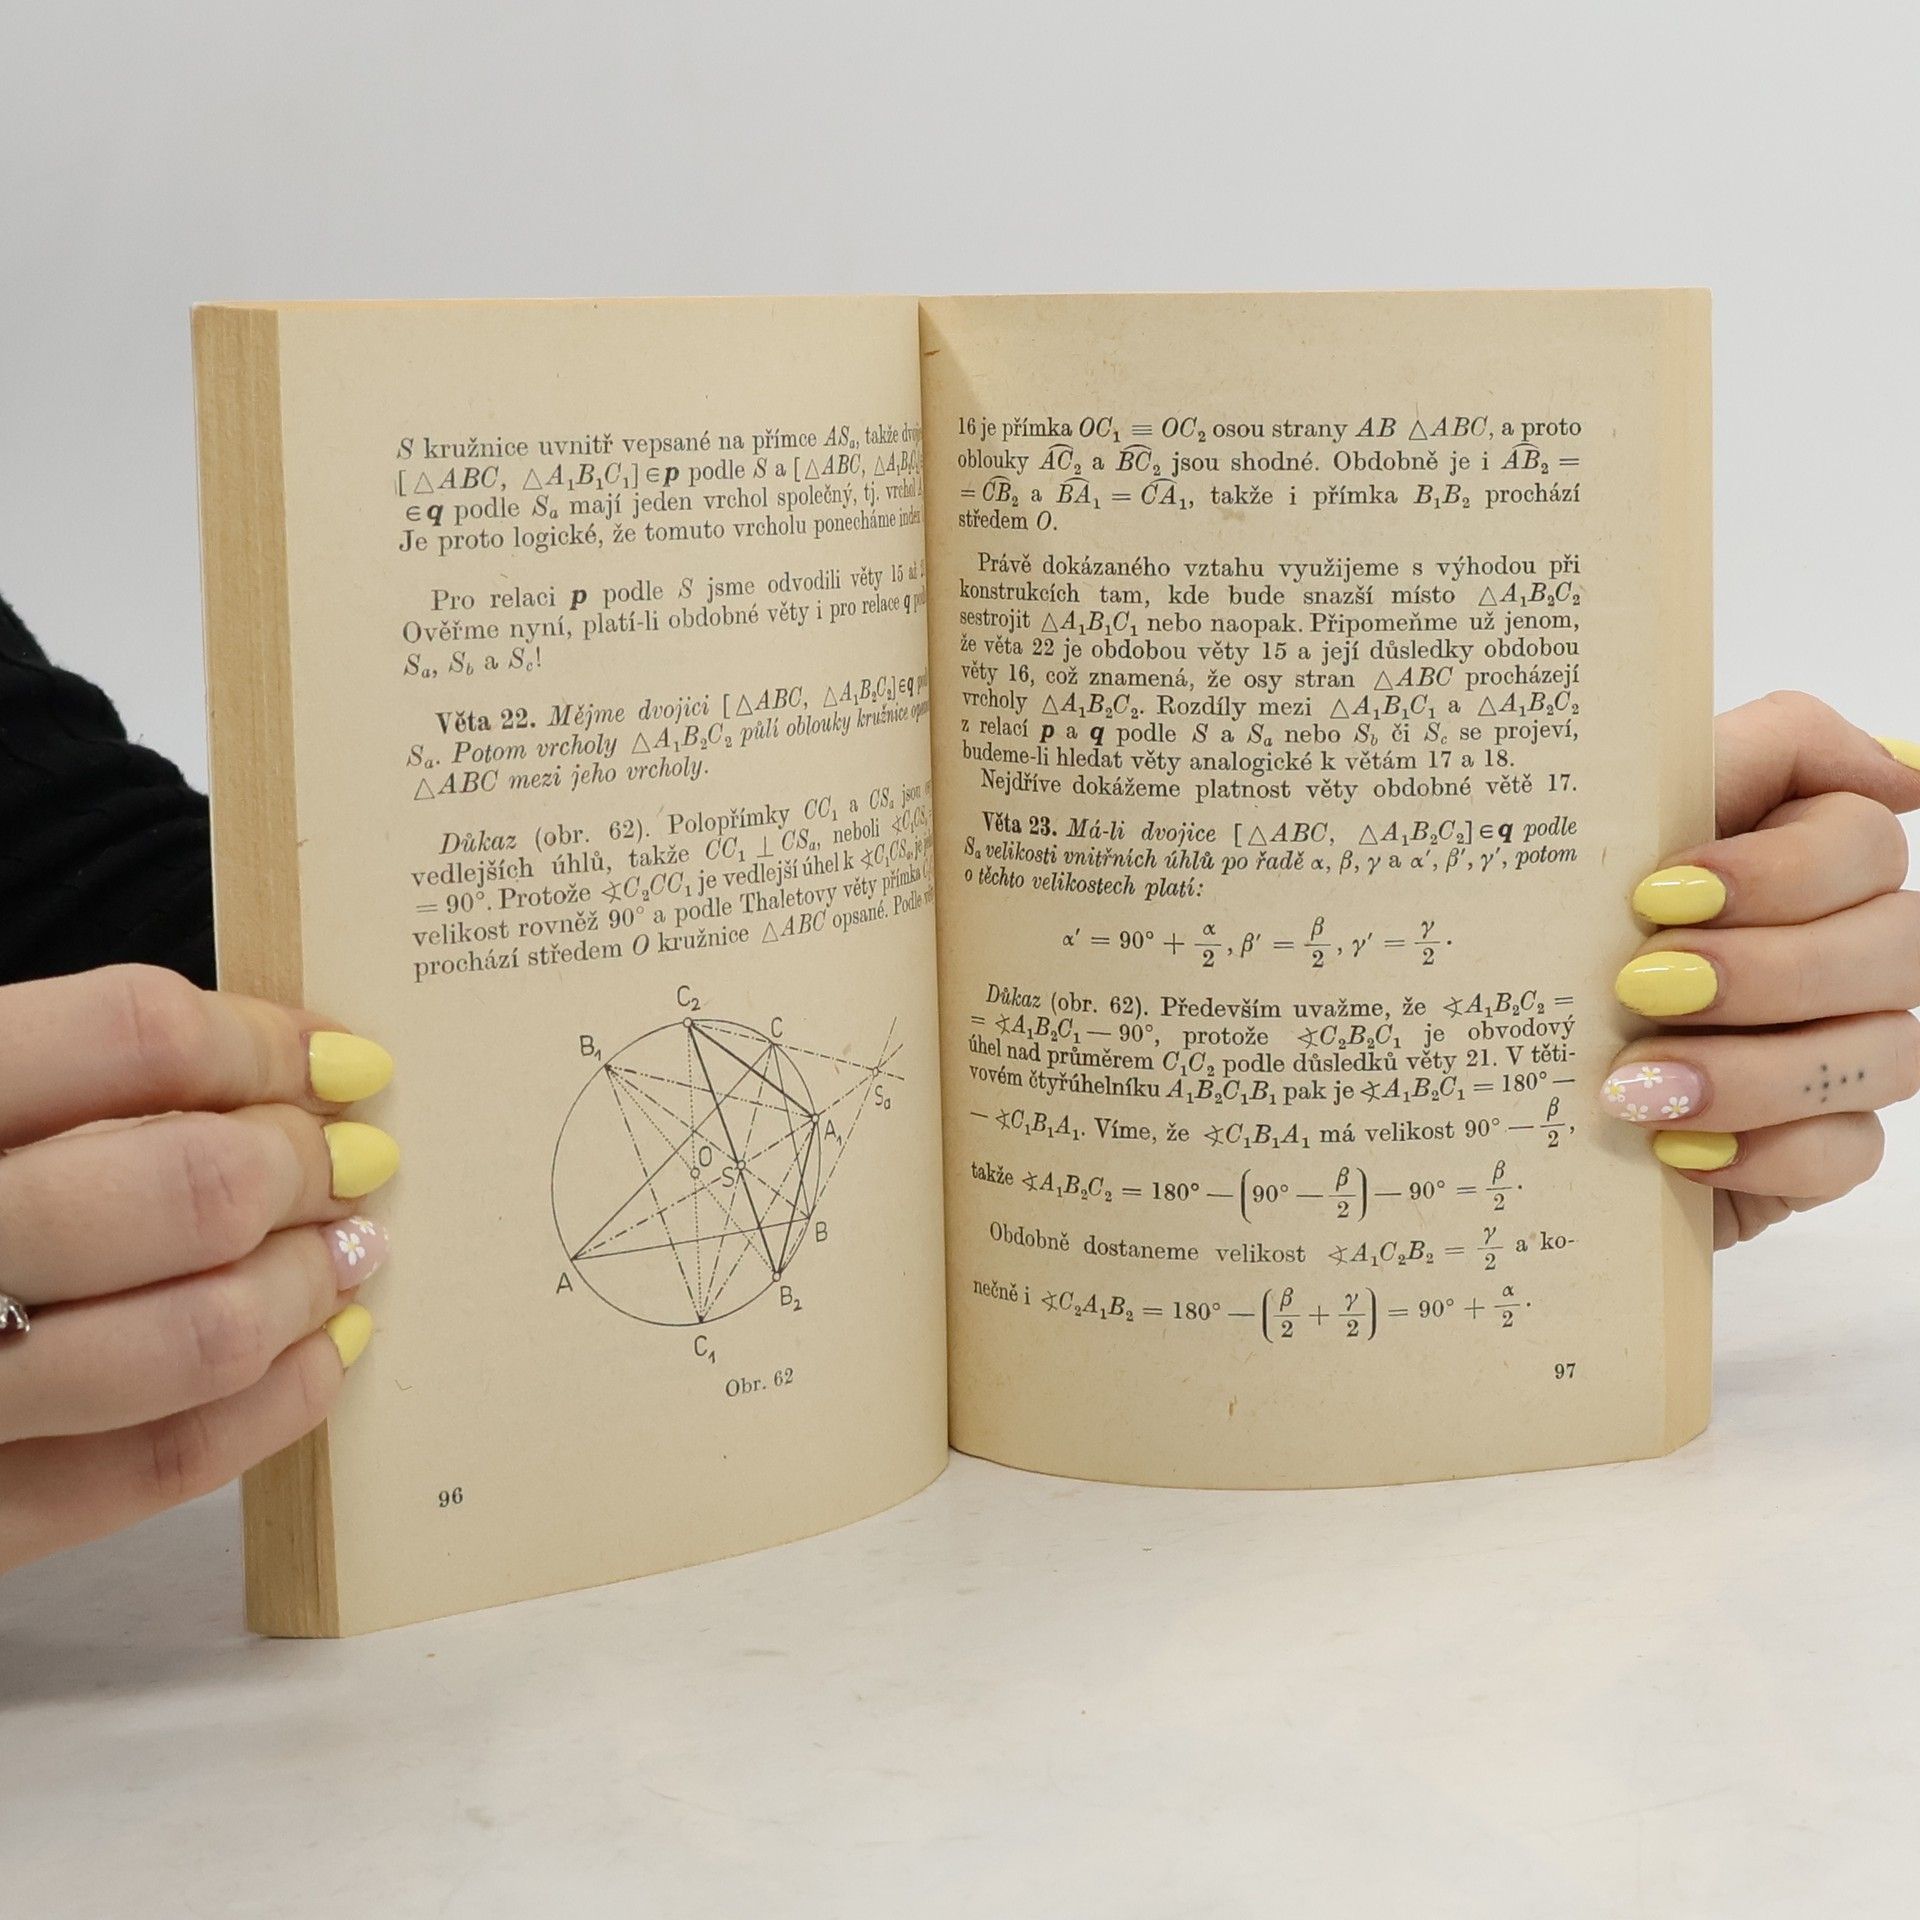 S kružnice uvnitř vepsané na přímce ASₐ, takže
[△ABC, △A₁B₁C₁]∈p podle S a [△ABC, △A₁B₂C₂]
∈q podle Sₐ mají jeden vrchol společný, tj. vrchol
Je proto logické, že tomuto vrcholu ponecháme index
Pro relaci p podle S jsme odvodili věty 15 až
Ověřme nyní, platí-li obdobné věty i pro relace q
Sₐ, S_b a S_c!
Věta 22. Mějme dvojici [△ABC, △A₁B₂C₂]∈q
Sₐ. Potom vrcholy △A₁B₂C₂ půlí oblouky kružnice
△ABC mezi jeho vrcholy.
Důkaz (obr. 62). Polopřímky CC₁ a CSₐ jsou
vedlejších úhlů, takže CC₁ ⊥ CSₐ, neboli ∢C₁CSₐ
= 90°. Protože ∢C₂CC₁ je vedlejší úhel k ∢C₁CSₐ, je
velikost rovněž 90° a podle Thaletovy věty přímka
prochází středem O kružnice △ABC opsané. Podle
C₂
C
B₁
Sₐ
A₁
O
S
B
A
B₂
C₁
Obr. 62
96
16 je přímka OC₁ ≡ OC₂ osou strany AB △ABC, a proto
oblouky A͡C₂ a B͡C₂ jsou shodné. Obdobně je i A͡B₂ =
= C͡B₂ a B͡A₁ = C͡A₁, takže i přímka B₁B₂ prochází
středem O.
Právě dokázaného vztahu využijeme s výhodou při
konstrukcích tam, kde bude snazší místo △A₁B₂C₂
sestrojit △A₁B₁C₁ nebo naopak. Připomeňme už jenom,
že věta 22 je obdobou věty 15 a její důsledky obdobou
věty 16, což znamená, že osy stran △ABC procházejí
vrcholy △A₁B₂C₂. Rozdíly mezi △A₁B₁C₁ a △A₁B₂C₂
z relací p a q podle S a Sₐ nebo S_b či S_c se projeví,
budeme-li hledat věty analogické k větám 17 a 18.
Nejdříve dokážeme platnost věty obdobné větě 17.
Věta 23. Má-li dvojice [△ABC, △A₁B₂C₂]∈q podle
Sₐ velikosti vnitřních úhlů po řadě α, β, γ a α′, β′, γ′, potom
o těchto velikostech platí:
α′ = 90° + α/2, β′ = β/2, γ′ = γ/2.
Důkaz (obr. 62). Především uvažme, že ∢A₁B₂C₂ =
= ∢A₁B₂C₁ — 90°, protože ∢C₂B₂C₁ je obvodový
úhel nad průměrem C₁C₂ podle důsledků věty 21. V těti-
vovém čtyřúhelníku A₁B₂C₁B₁ pak je ∢A₁B₂C₁ = 180° —
— ∢C₁B₁A₁. Víme, že ∢C₁B₁A₁ má velikost 90° — β/2,
takže ∢A₁B₂C₂ = 180° — (90° — β/2) — 90° = β/2.
Obdobně dostaneme velikost ∢A₁C₂B₂ = γ/2 a ko-
nečně i ∢C₂A₁B₂ = 180° — (β/2 + γ/2) = 90° + α/2.
97